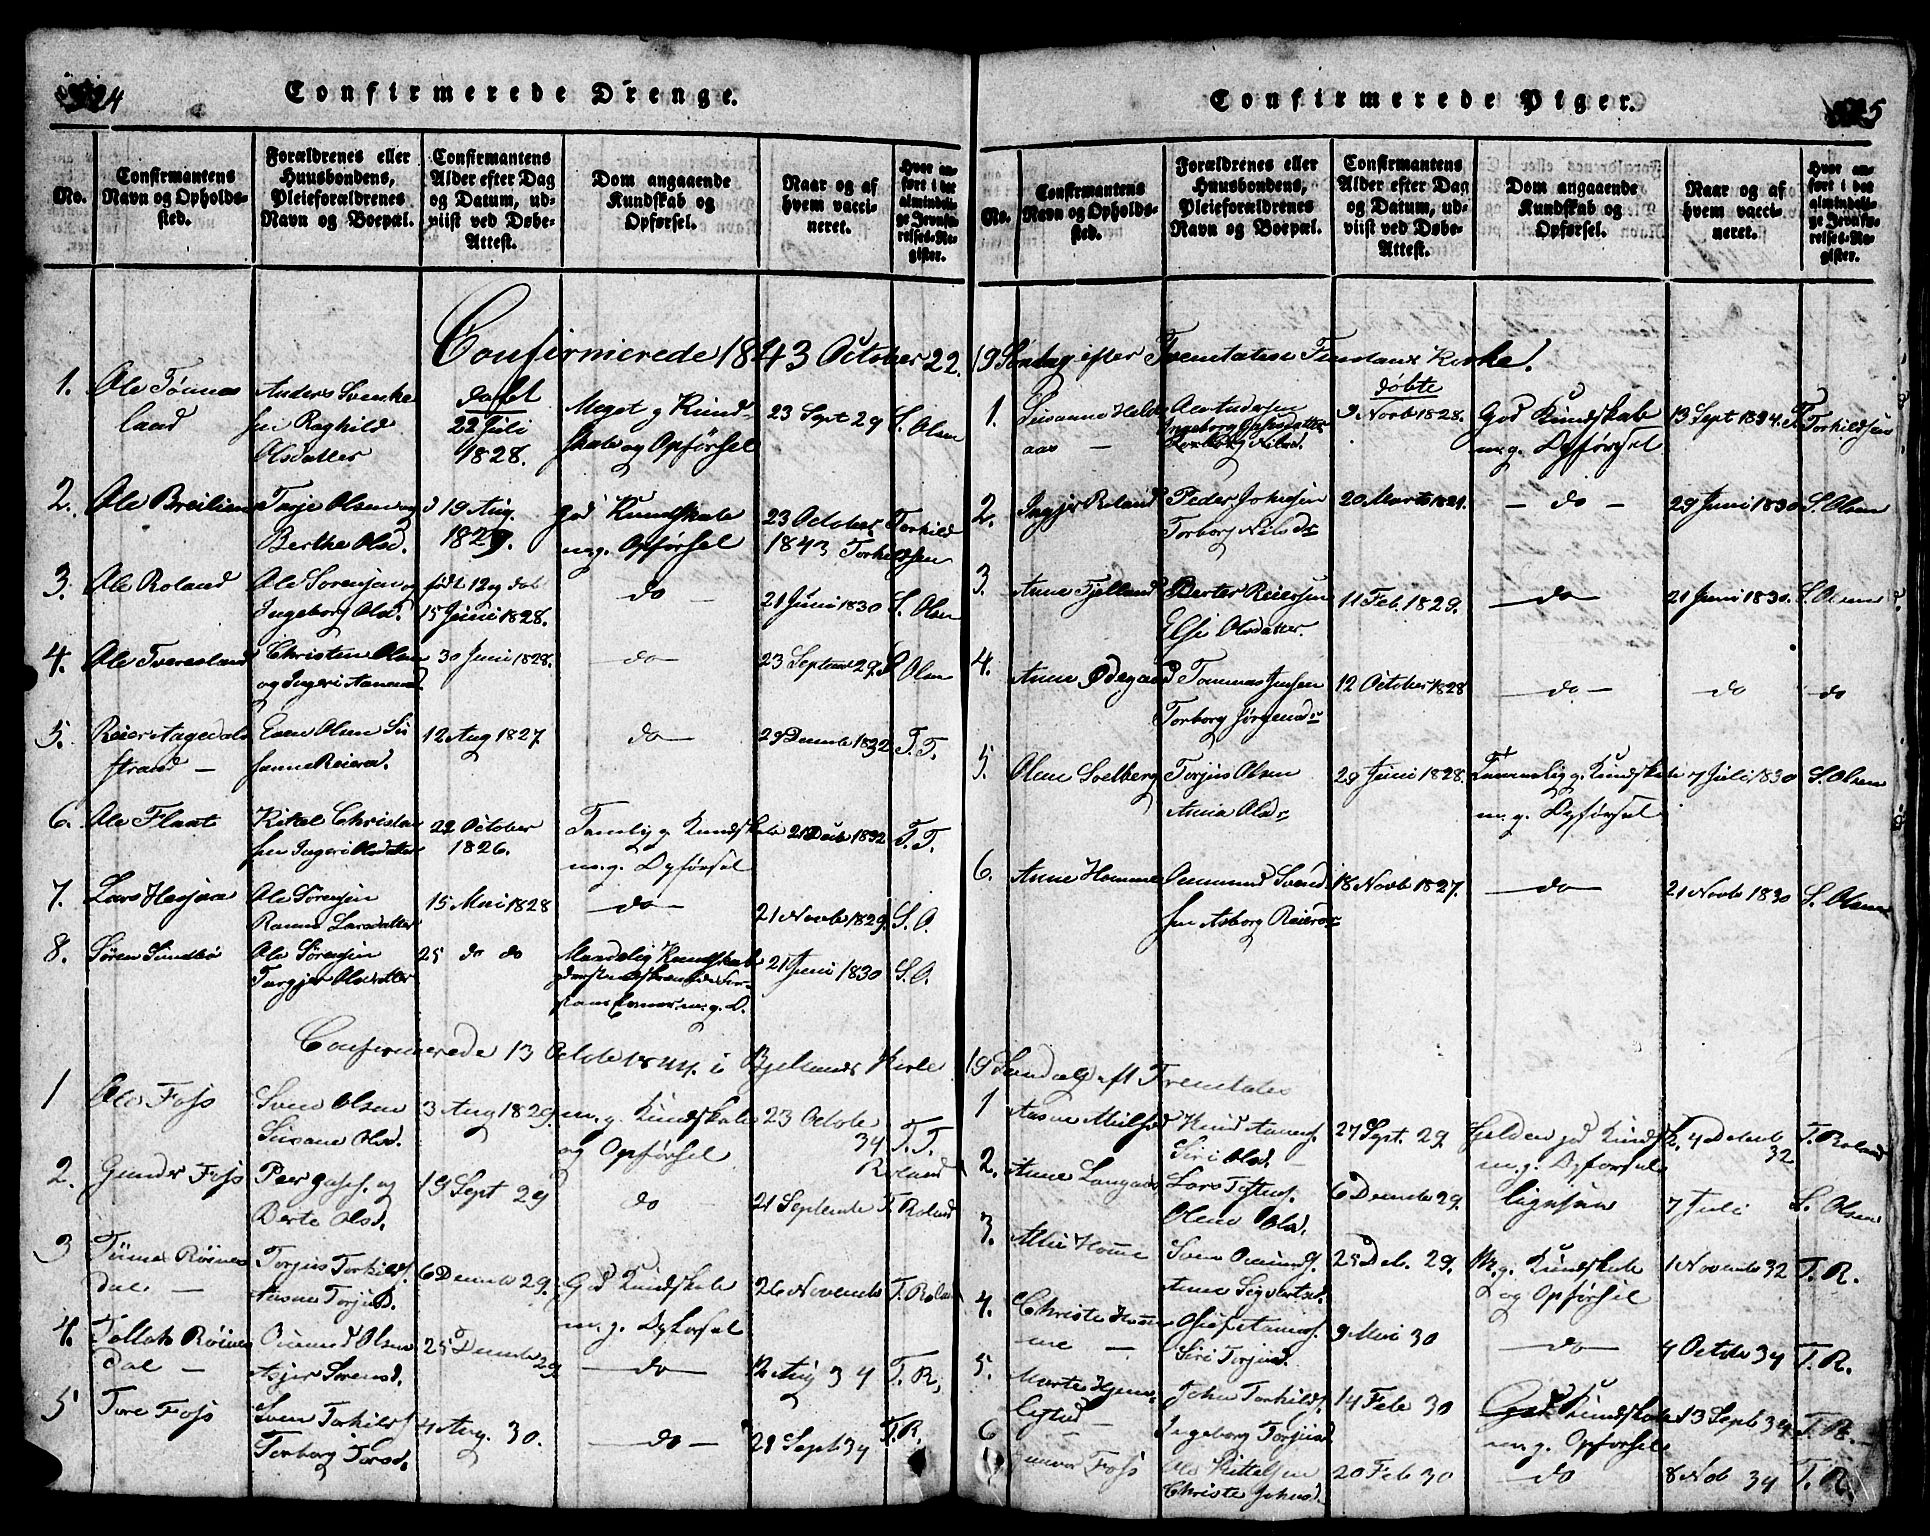 Confirmerede Drenge.
No.
Confirmantens Navn og Opholdssted.
Forældrenes eller Huusbondens, Pleieforældrenes Navn og Boepæl.
Confirmantens Alder efter Dag og Datum, udviist ved Døbe-Attest.
Dom angaaende Kundskab og Opførsel.
Naar og af hvem vaccineret.
Confirmerede 1843 October 22.
1. Ole Tønnesland
Anders Svenke
sen Raghild
Olsdatter
døbt
22 Juli
1828.
Meget g Kund-
skab og Opførsel
23 Sept 29
S. Olsen
2. Ole Breilien
Terje Olsen og
Berthe Olsd.
19 Aug.
1829.
god Kundskab
m.g. Opførsel
23 October
1843
Torkild
Torkildsen
3. Ole Roland
Ole Sørensen og
Ingeborg Olsd.
født 12 og døb
15 Juni 1828.
do
21 Juni 1830
S. Olsen
4. Ole Tveresland
Christen Olsen
og Ingeri Aanensd
30 Juni 1828.
do
23 September 29
S Olsen
5. Reier Aagedal
strand
Even Olsen Su
sanne Reiersd.
12 Aug 1827.
do
29 Decemb 1832
T. T.
6. Ole Flaat
Kikel Christen
sen Ingeri Olsdatter
22 October
1826.
Temlig g Kundskab
m.g. Opførsel
21 Decb 1832
T. T.
7.
Ole Sørensen
Larsdatter
15 Mai 1828
do
21 Novb 1829.
S. O.
8. Søren Sundbø
Ole Sørensen
Torgjer Olsdatter
25 do do
Maadelig Kundskab
m.g. O.
21 Juni 1830
S. O.
Confirmerede 13 Octobr 1844. i Bjellands Kirke
1 Ole Foss
Sven Olsen
Susane Olsd.
3 Aug 1829.
m.g. Kundskab
og Opførsel
23 Octobe
34
T. T.
Roland
2. Foss
Peer Josef. og
Berte Olsd.
19 Sept 29
do
21 Septembe
T. Roland
3 Røines
dal
Torjus Torkilds.
Aasne Torjusd.
6 Decemb 29.
God Kundskab
m.g. Opførsel
26 Novemb
T. Roland
4. Tollak Røines
dal
Omund Olsen
Asjer Sørensd.
25 Decemb
29
do
12 Aug 34
T. R.
5 Tore Foss
Sven Torkilds
Torborg Torsd.
4 Aug. 30.
do
21 Sept 34
T. R.
Confirmerede Piger.
No.
Confirmantens Navn og Opholdssted.
Forældrenes eller Huusbondens, Pleieforældrenes Navn og Boepæl.
Confirmantens Alder efter Dag og Datum, udviist ved Døbe-Attest.
Dom angaaende Kundskab og Opførsel.
Naar og af hvem vaccineret.
19 Søndag efter Trenitatis i Finslands Kirke.
1. Susanne Helde
aas
Andersen
døbte
9 Novb 1828.
God Kundskab
m.g. Opførsel
13 Sept 1834.
T. Torkildsen
2. Ingjer Roland
Peder Johnsen
Torborg Nilsdr
20 Marts 1829.
do
29 Juni 1830
S. Olsen
3. Anne Fjelland
Berter Reiersen
Else Olsdatter.
11 Feb. 1829.
do
21 Juni 1830.
S. Olsen
4. Anne Ødegaard
Tommas Jensen
Torborg Jørgensdr
12 October 1828
do
do
do
5. Olene Solberg
Torjus Olsen
Anna Olsdr
29 Juni 1828.
Temmelig g. Kundskab
m.g. Opførsel
7 Juli 1830
S. Olsen
6. Anne Homme
Ommund Svend
sen Asborg Reiersdr
18 Novb 1827.
do
21 Novb 1830
S. Olsen
19 Søndag eft Trenitates
1
Knud Aanens.
Siri Olsd.
27 Sept. 29.
m.g. Opførsel
4 Decemb
32
T. Roland
2. Anne Langaas
Lars Teftus.
Olene Olsd.
6 Decemb 29.
ligesaa
7 Juli
S. Olsen
3.
Sven Omunds.
Anne Sigvartsd.
25 Deb. 29.
M.g. Kundskab
og Opførsel
1 Novemb 32
T. R.
4. Christe Hom
me
Osuf Aanens.
Siri Torjusd.
9 Mai 30
do
4 Octob 34
T. R.
5. Marte
John Torkilds.
Ingeborg Torjusd.
14 Feb 30
God Kundskab
m.g. Opførsel
13 Sept 34
T. R.
6 Gunvor Foss
Ole Kittelsen
Christe Johnsd.
20 Feb 30
do
8 Nob 34
T. R.